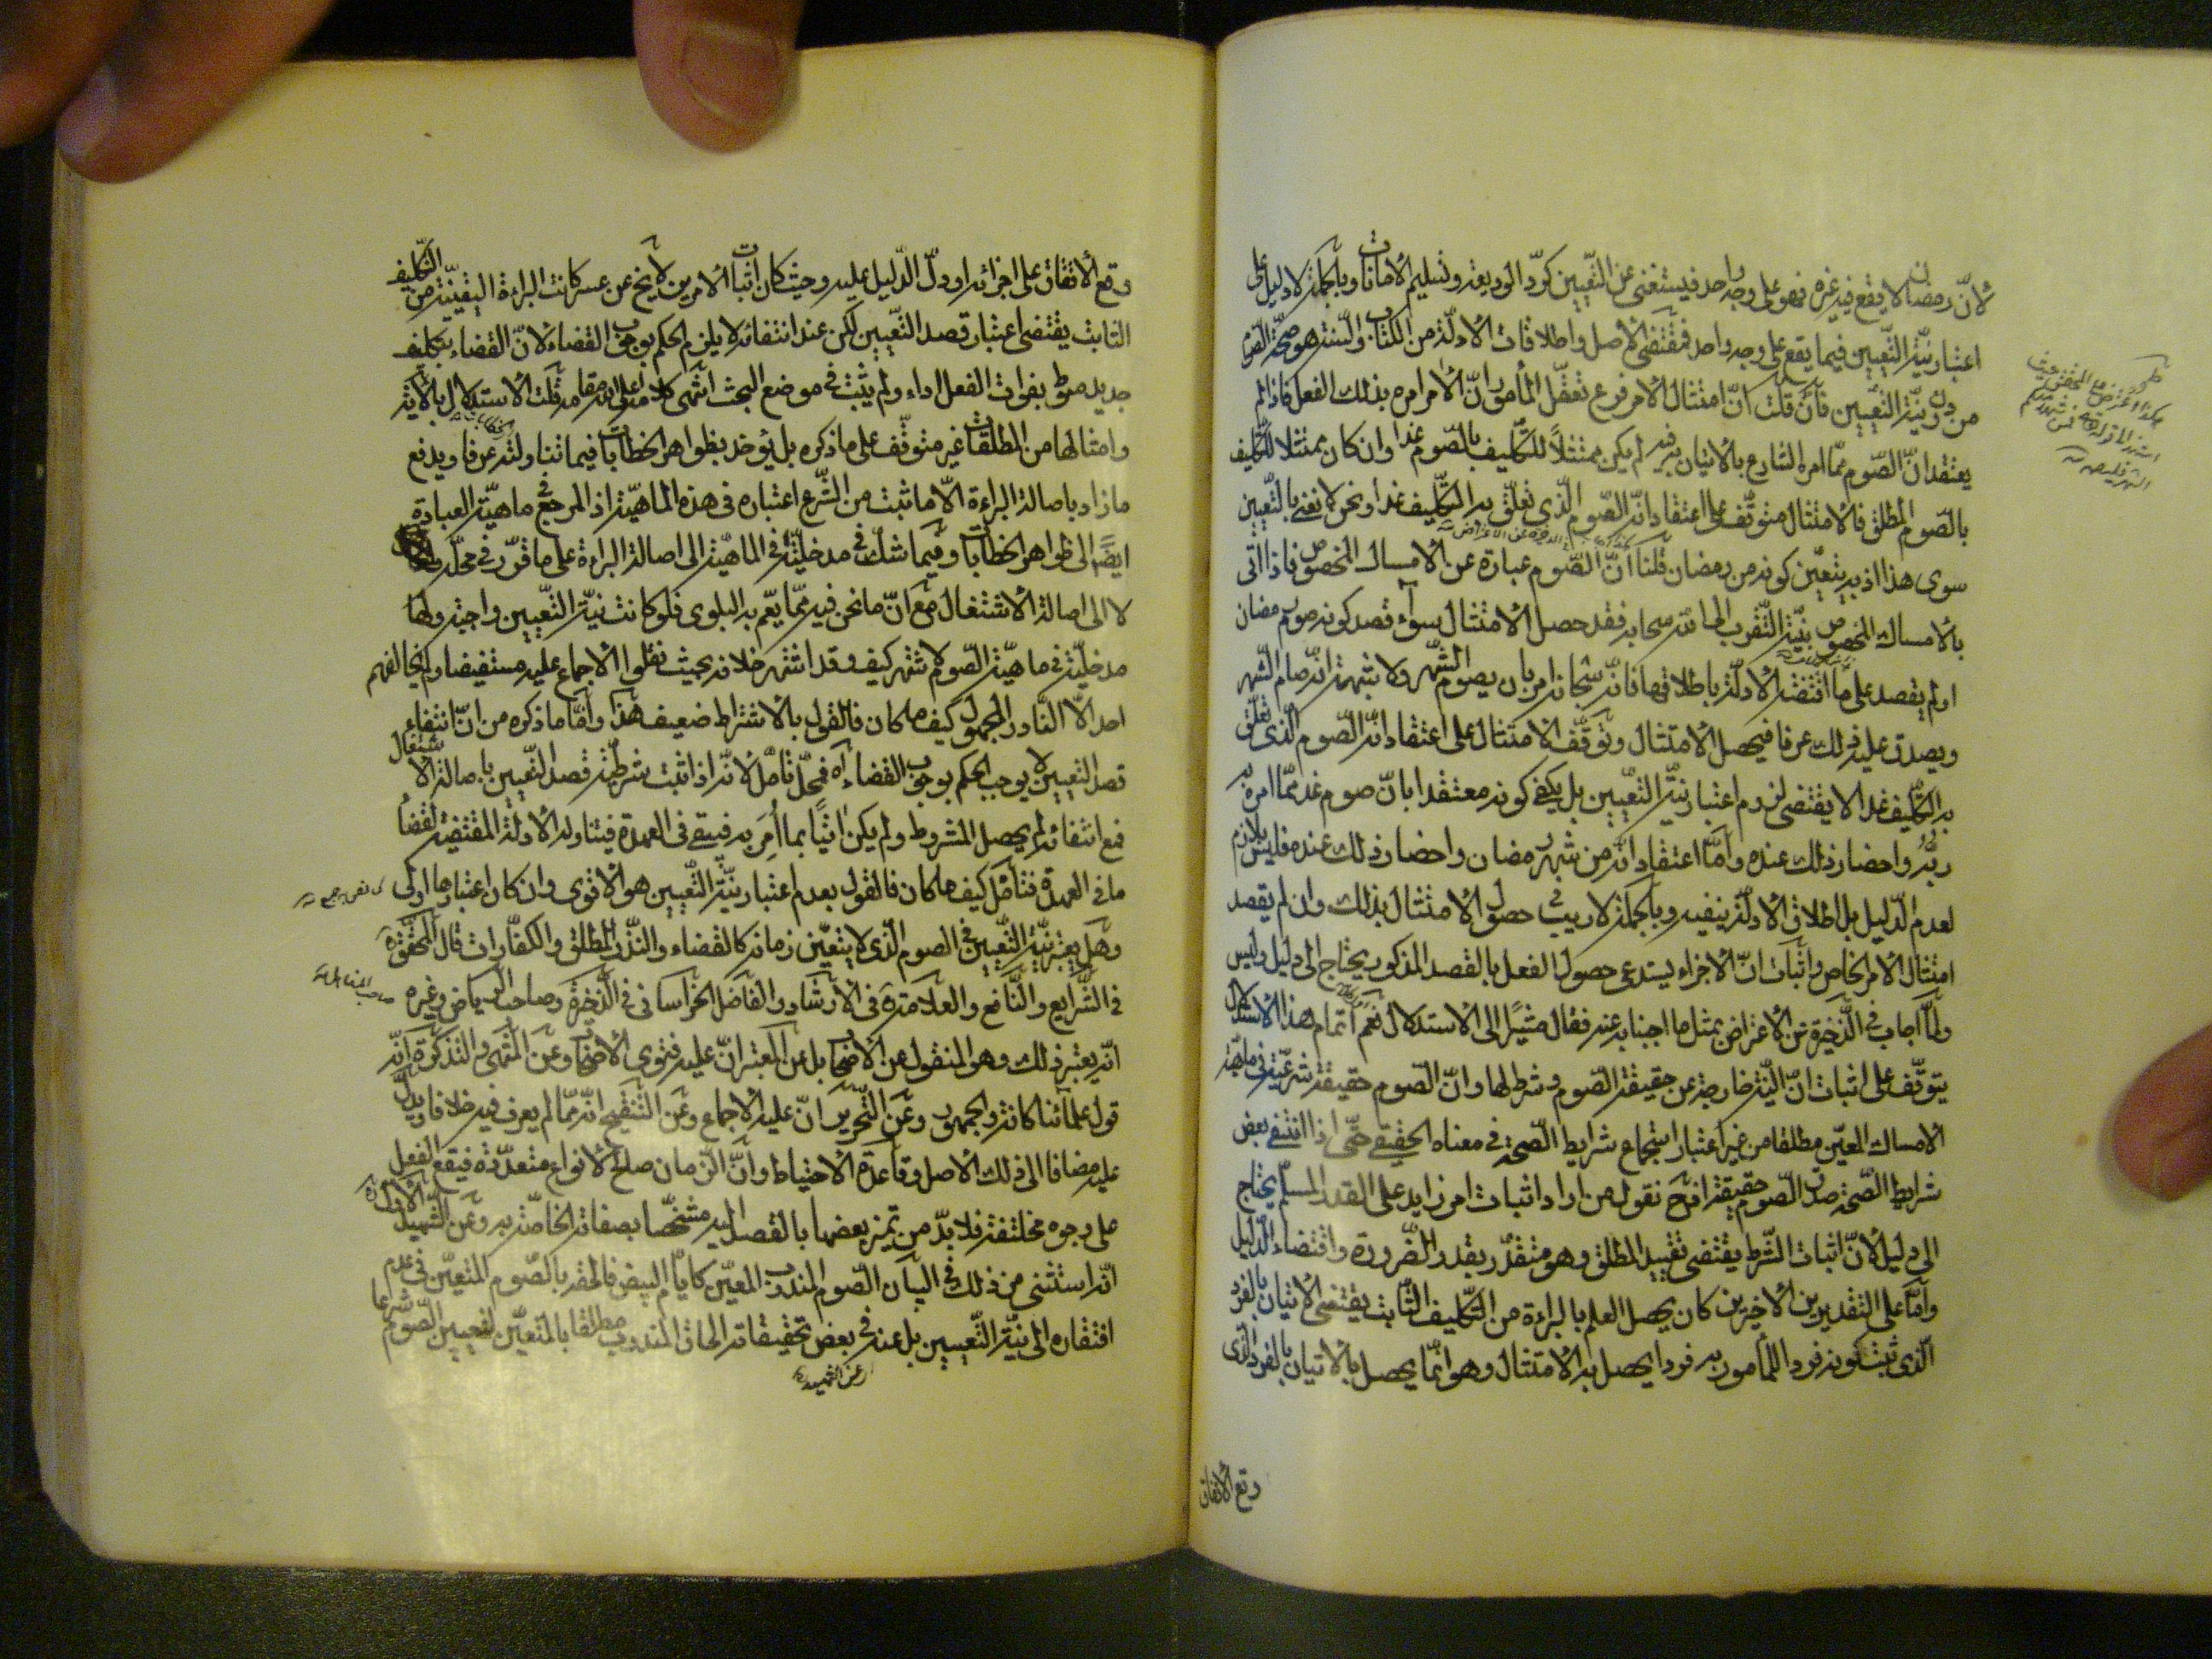 لانّ رمضان لا يقع فيه غيره فهو على وجه واحد فيستغنى عن التّعيين كردّ الوديعة وتسليم الامانات وبالجملة لا دليل على
اعتبار نيّة التّعيين فيما يقع على وجه واحد فمقتضى الاصل واطلاقات الادلّة من الكتاب والسّنة هو صحّة الصوم
من دون نيّة التّعيين فان قلت انّ امتثال الامر فرع تعقّل المأمور انّ الامر امره بذلك الفعل فاذا لم
يعتقد انّ الصّوم ممّا امره الشارع بالاتيان به فيه لم يكن ممتثلاً للتّكليف بالصّوم غدا وان كان ممتثلا للتّكليف
بالصّوم المطلق فالامتثال متوقّف على اعتقاد انّه الصّوم الّذى تعلّق به التّكليف غدا ونحن لا نعنى بالتّعيين
سوى هذا اذ به يتعيّن كونه من رمضان قلنا انّ الصّوم عبارة عن الامساك المخصوص فاذا اتى
بالامساك المخصوص بنيّة التّقرب الى الله سبحانه فقد حصل الامتثال سواء قصد كونه صوم رمضان
او لم يقصد على ما اقتضته الادلّة باطلاقها فانّه سبحانه امر بان يصوم الشّهر ولا شبهة انّه صام الشّهر
ويصدق عليه ذلك عرفا فيحصل الامتثال وتوقّف الامتثال على اعتقاد انّه الصّوم الّذى تعلّق
به التّكليف غدا لا يقتضى لزوم اعتبار نيّة التّعيين بل يكفى كونه معتقدا بانّ صوم غد ممّا امره به
ربّه واحضار ذلك عنده وامّا اعتقاد انّه من شهر رمضان واحضار ذلك عنده فليس بلازم
لعدم الدّليل بل اطلاق الادلّة ينفيه وبالجملة لا ريب فى حصول الامتثال بذلك وان لم يقصد
امتثال الامر الخاص واثبات انّ الاجزاء يستدعى حصول الفعل بالقصد المذكور يحتاج الى دليل وليس
ولمّا اجاب فى الذّخيرة عن الاعتراض بمثل ما اجبنا به عنه فقال مشيرًا الى الاستدلال نعم اتمام هذا الاستدلال
يتوقّف على اثبات انّ النيّة خارجة عن حقيقة الصّوم وشرط لها وانّ الصّوم حقيقة شرعيّة فى ماهيّة
الامساك المعيّن مطلقا من غير اعتبار استجماع شرايط الصّحة فى معناه الحقيقى حتّى اذا انتفى بعض
شرايط الصّحة صدق الصّوم حقيقة اذ ح نقول من اراد اثبات امر زايد على القدر المسلّم يحتاج
الى دليل لانّ اثبات الشّرط يقتضى تقييد المطلق وهو متقدّر بقدر الضّرورة واقتضاء الدّليل
وامّا على التقديرين الاخيرين كان يحصل العلم بالبراءة من التّكليف الثّابت يقتضى الاتيان بالفرد
الّذى ثبت كونه فردا للمأمور به فردا يحصل به الامتثال وهو انّما يحصل بالاتيان بالفرد الّذى
وقع الاتفاق
وقع الاتفاق على اجزائه او دلّ الدّليل عليه وحيث كان اثبات الامرين لا يخ عن عسر كانت البراءة اليقينيّة من التّكليف
الثابت يقتضى اعتبار قصد التّعيين لكن عند انتفائه لا يلزم الحكم بوجوب القضاء لانّ القضاء بتكليف
جديد منوط بفوات الفعل اداء ولم يثبت فى موضع البحث انتهى كلامه اعلى الله مقامه قلت الاستدلال بالآية
وامثالها من المطلقات غير متوقّف على ما ذكره بل يؤخذ بظواهر الخطابات فيما تناولته عرفا ويدفع
ما زاد باصالة البراءة الّا ما ثبت من الشّرع اعتباره فى هذه الماهيّة اذ المرجع فى ماهيّة العبادة
ايضًا الى ظواهر الخطابات وفيما شكّ فى مدخليّته فى الماهيّة الى اصالة البراءة على ما قرّر فى محلّه
لا الى اصالة الاشتغال مع انّ ما نحن فيه ممّا يعم به البلوى فلو كانت نيّة التّعيين واجبة ولها
مدخليّة فى ماهيّة الصّوم لاشتهر كيف وقد اشتهر خلافه بحيث نقلوا الاجماع عليه مستفيضا ولم يخالفهم
احد الّا النّادر المجهول كيف ما كان فالقول بالاشتراط ضعيف هذا وامّا ما ذكره من انّ انتفاء
قصد التّعيين لا يوجب الحكم بوجوب القضاء اه فمحلّ تأمّل لانّه اذا ثبت شرطيّة قصد التّعيين باصالة الاشتغال
فمع انتفائه لم يحصل المشروط ولم يكن اٰتيًا بما اُمِرَ به فيبقى فى العهدة فيتناوله الادلّة المقتضية لقضاء
ما فى العهدة فتأمّل كيف ما كان فالقول بعدم اعتبار نيّة التّعيين هو الاقوى وان كان اعتبارها اولى
وهل يعتبر نيّة التّعيين فى الصوم الّذى لا يتعيّن زمانه كالقضاء والنّذر المطلق والكفّارات قال المحقّق ره
فى الشّرايع والنّافع والعلّامة ره فى الارشاد والفاضل الخراسانى فى الذّخيرة وصاحب الرّياض وغيره
انّه يعتبر ذلك وهو المنقول عن الاصحاب بل عن المعتبر انّ عليه فتوى الاصحاب وعن المنتهى والتذكرة انّه
قول علمائنا كافة والجمهور وعن التّحرير انّ عليه الاجماع وعن التّنقيح انّه ممّا لم يعرف فيه خلافا ويدلّ
عليه مضافا الى ذلك الاصل وقاعدة الاحتياط وانّ الزّمان صالح لانواع متعدّدة فيقع الفعل
على وجوه مختلفة فلا بدّ من تميز بعضها بالقصد اليه مشخّصا بصفاته الخاصّة به وعن الشّهيد الاوّل ره
انّه استثنى من ذلك فى البيان الصّوم المندوب المعيّن كايّام البيض فالحقه بالصّوم المتعيّن فى عدم
افتقاره الى نيّة التّعيين بل عنه فى بعض تحقيقاته الحاق المندوب مطلقا بالمتعيّن لتعيين الصّوم شرعا